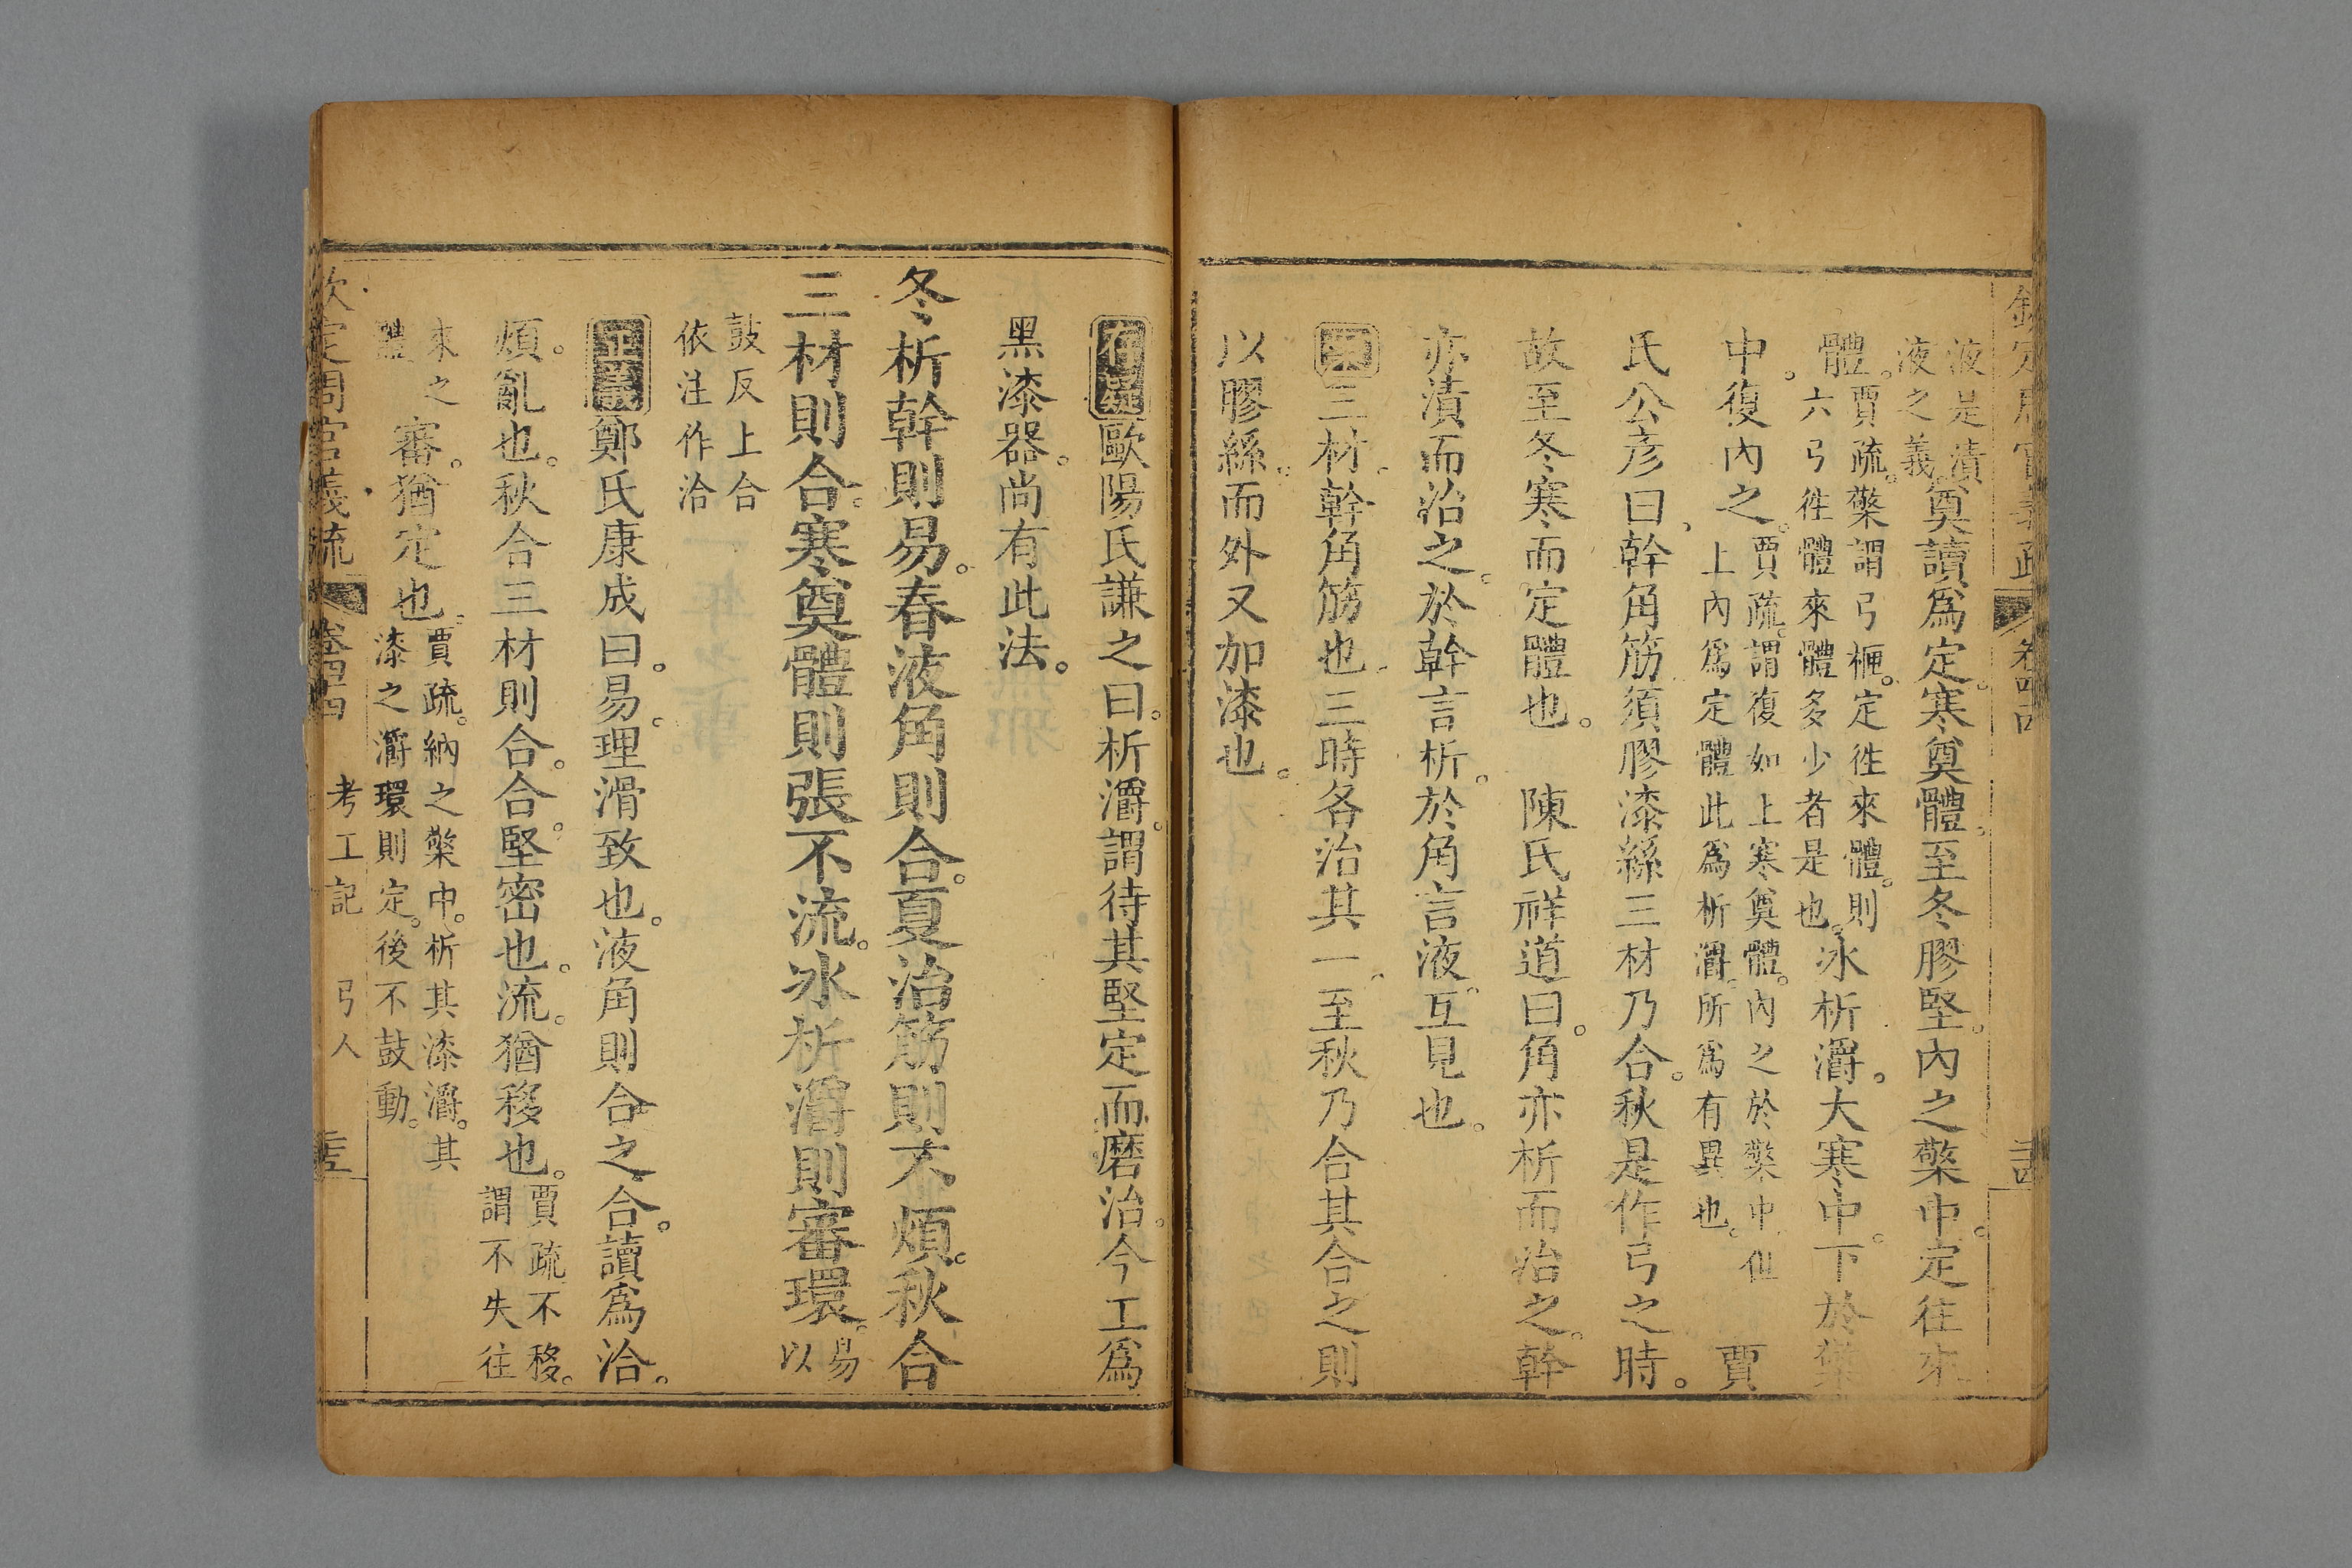 欽定周官義疏 卷四十四
液是漬
液之義
奠讀爲定。寒奠體。至冬膠堅。內之檠中。定往來
體。
賈疏。檠謂弓䪐。定往來體。則
六弓往體來體多少者是也。
冰析灂。大寒中。下於檠
中。復內之。
賈疏。謂復如上寒奠體。內之於檠中但
上內爲定體此爲析灂。所爲有異也。
賈
氏公彥曰、幹角筋須膠漆絲三材乃合。秋是作弓之時。
故至冬寒而定體也。 陳氏祥道曰。角亦析而治之。幹
亦漬而治之。於幹言析。於角言液。互見也。
案三材。幹角筋也。三時各治其一。至秋乃合其合之則
以膠絲。而外又加漆也。
存疑歐陽氏謙之曰。析灂。謂待其堅定而磨治。今工爲
黑漆器。尚有此法。
冬析幹則易。春液角則合。夏治筋則不煩。秋合
三材則合。寒奠體則張不流。冰析灂則審環。
易
以
鼓反上合
依注作洽
正義鄭氏康成曰。易。理滑致也。液角則合之合。讀爲洽。
煩。亂也。秋合三材則合。合。堅密也。流。猶移也。
賈疏不移。
謂不失往
來之
體
審。猶定也。
賈疏。納之檠中。析其漆灂。其
漆之灂環則定。後不鼓動。
欽定周官義疏 卷四十四 考工記 弓人